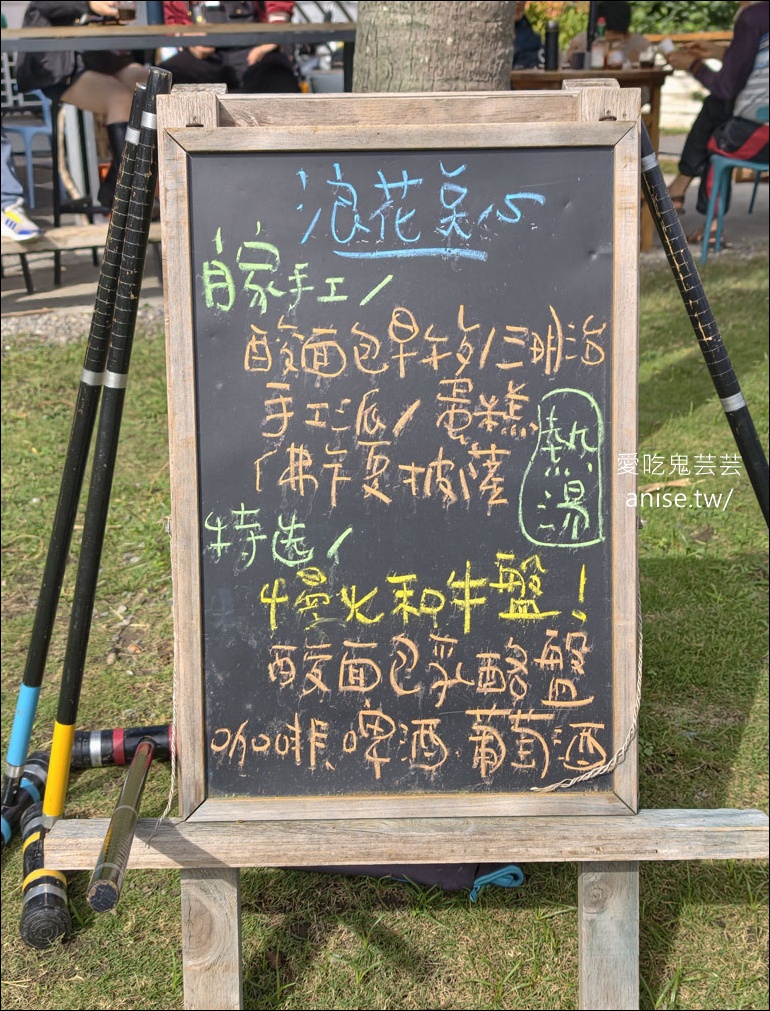 浪花奌心
自家手工/
酸面包早午歺/三明治
手工派/蛋糕
佛卡夏披薩
熱湯
愛吃鬼芸芸
anise.tw/
特选/
慢火和牛盤!
酸面包乳酪盤
咖啡.啤酒.葡萄酒